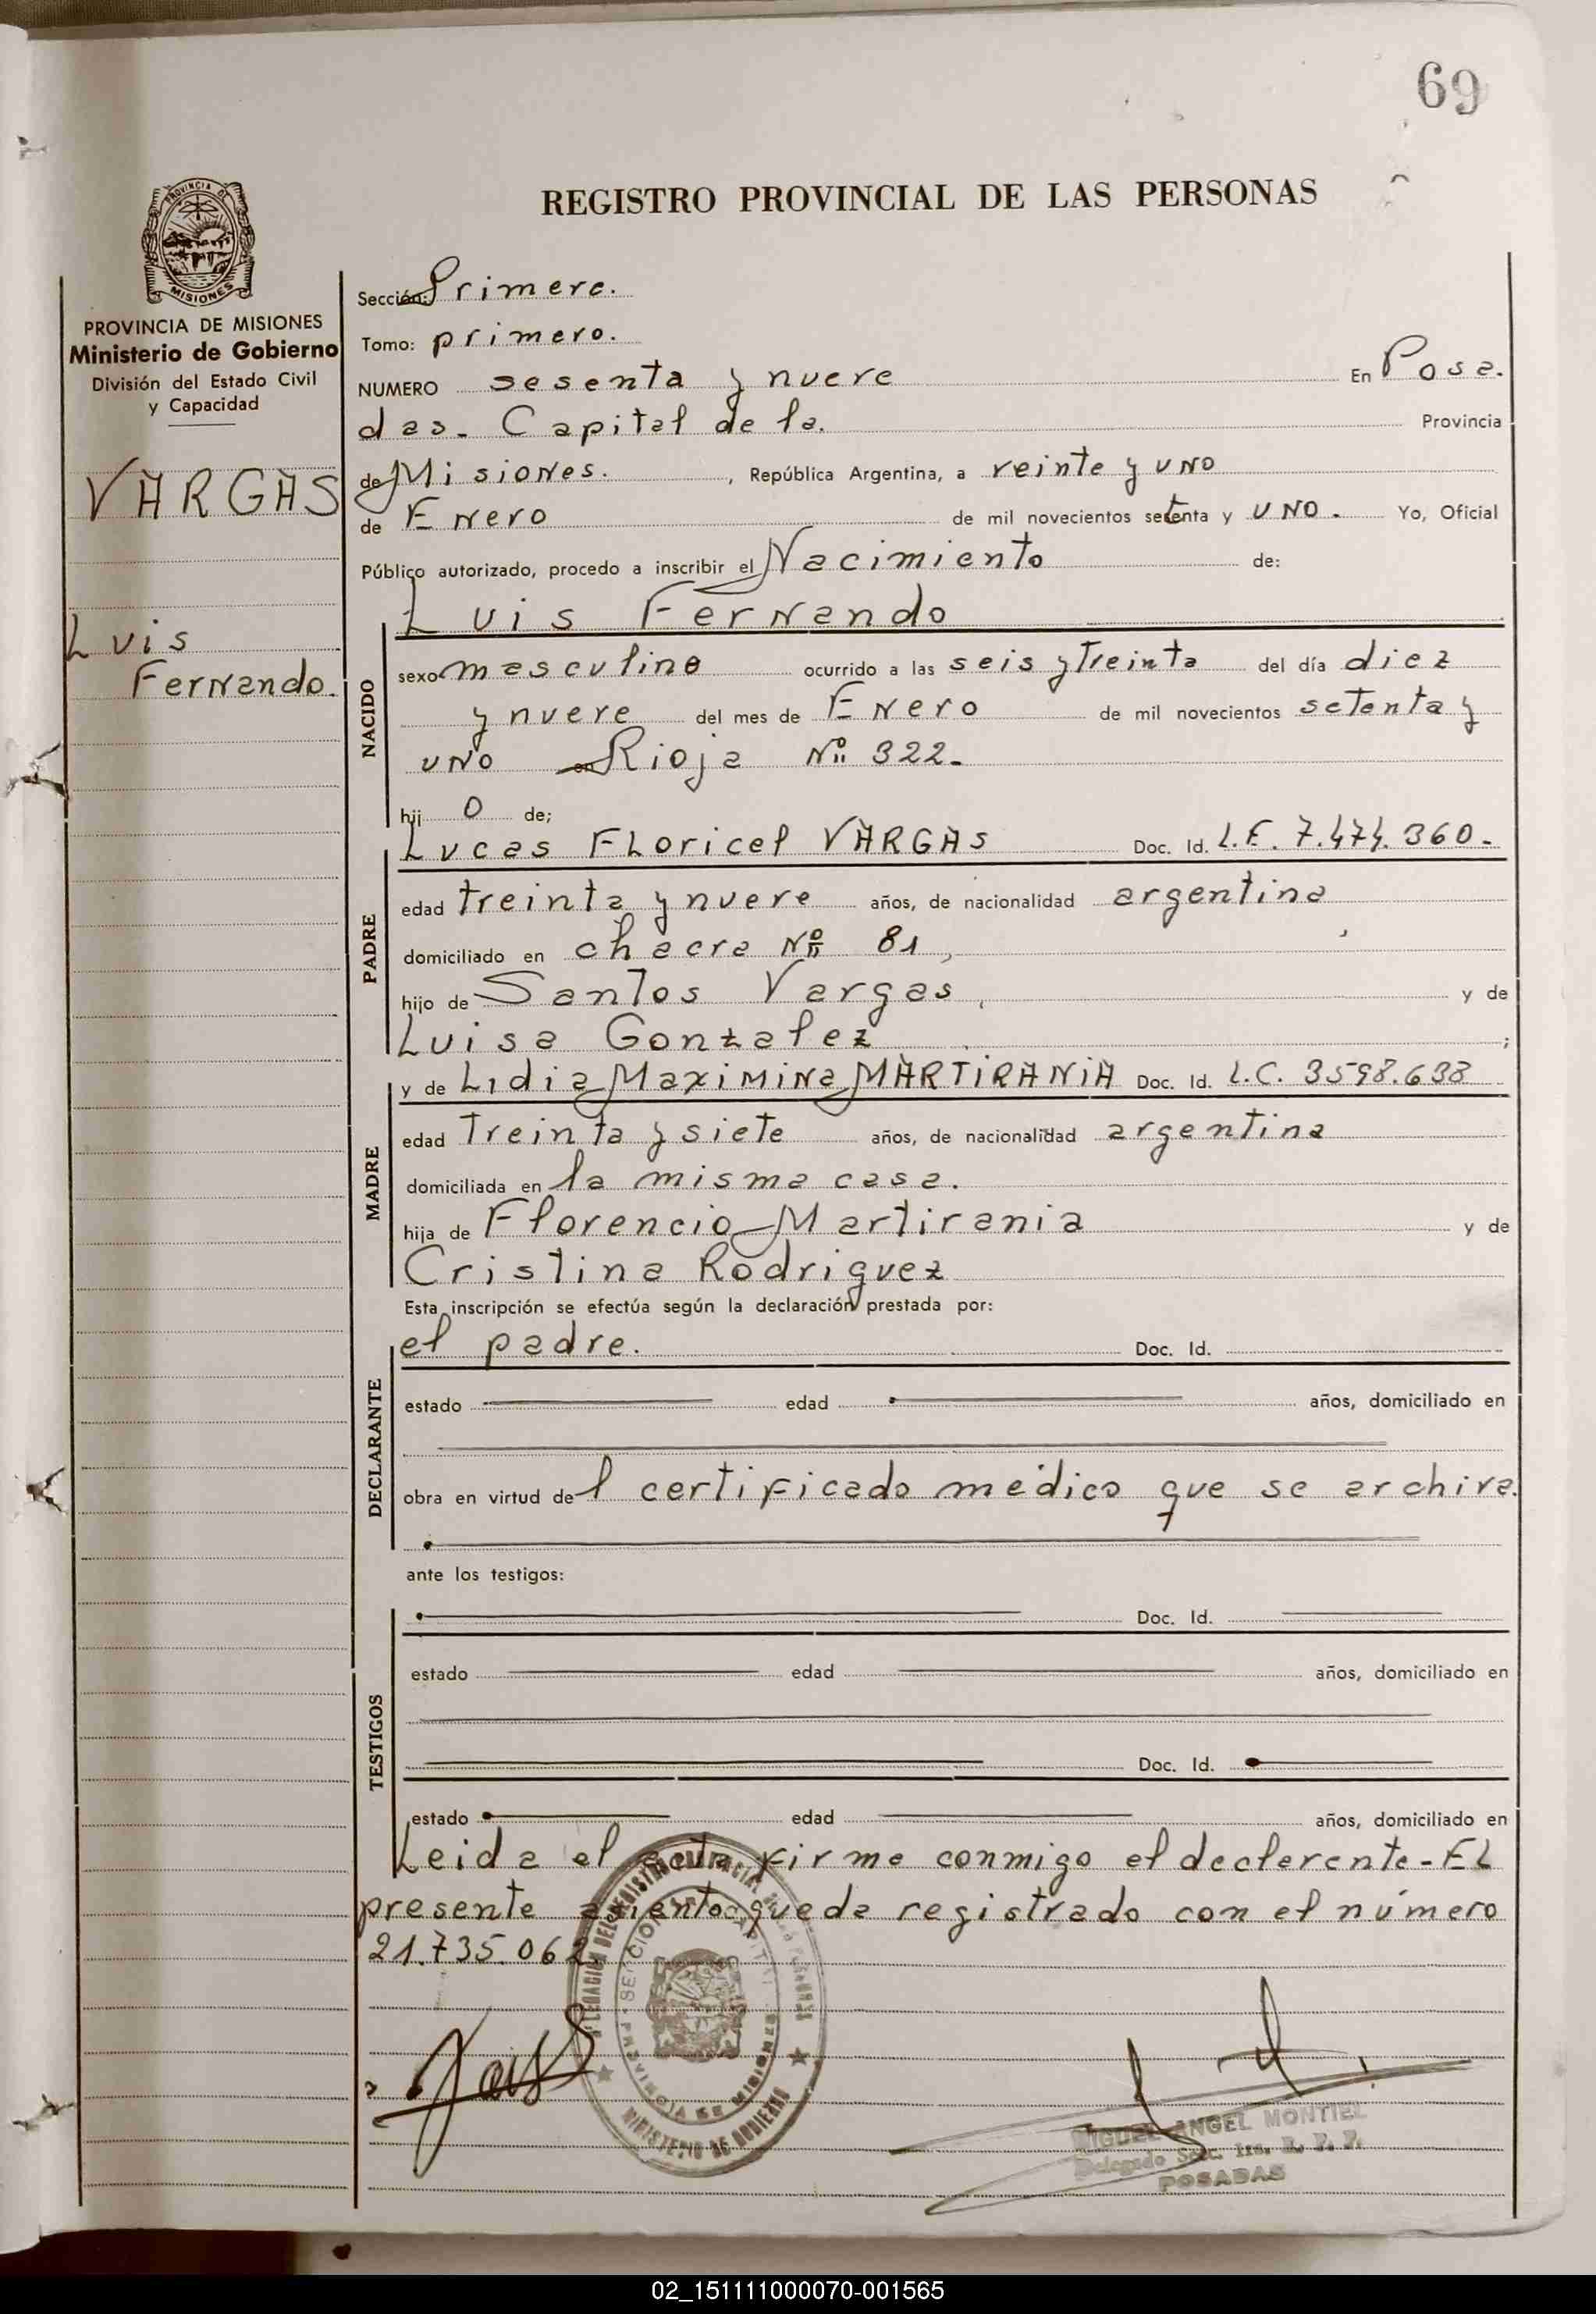 69
REGISTRO PROVINCIAL DE LAS PERSONAS
PROVINCIA DE MISIONES
PROVINCIA DE MISIONES
Ministerio de Gobierno
División del Estado Civil
y Capacidad
VARGAS
Luis
Fernando.
Sección: Primera.
Tomo: primero.
NUMERO sesenta y nueve En Posa.
das. Capital de la. Provincia
de Misiones. , República Argentina, a veinte y uno
de Enero de mil novecientos setenta y uno. Yo, Oficial
Público autorizado, procedo a inscribir el Nacimiento de:
Luis Fernando
NACIDO
sexo masculino ocurrido a las seis y treinta del día diez
y nueve del mes de Enero de mil novecientos setenta y
uno en Rioja Nº 322.
hij o de;
Lucas Floricel VARGAS Doc. Id. L.E. 7.474.360.
PADRE
edad treinta y nueve años, de nacionalidad argentina,
domiciliado en chacra Nº 81,
hijo de Santos Vargas, y de
Luisa Gonzalez ;
y de Lidia Maximina MARTIRANIA Doc. Id. L.C. 3598.638
MADRE
edad Treinta y siete años, de nacionalidad argentina
domiciliada en la misma casa.
hija de Florencio Martirania y de
Cristina Rodriguez
Esta inscripción se efectúa según la declaración prestada por:
el padre. Doc. Id.
DECLARANTE
estado edad años, domiciliado en
obra en virtud de l certificado médico que se archiva.
ante los testigos:
Doc. Id.
TESTIGOS
estado edad años, domiciliado en
Doc. Id.
estado edad años, domiciliado en
Leida el acta firma conmigo el declarante-El
presente asiento queda registrado con el número
21.735.062
MINISTERIO DE GOBIERNO
PROVINCIA DE MISIONES
MIGUEL ANGEL MONTIEL
Delegado Secc. 1ra. R. P. P.
POSADAS
02_151111000070-001565